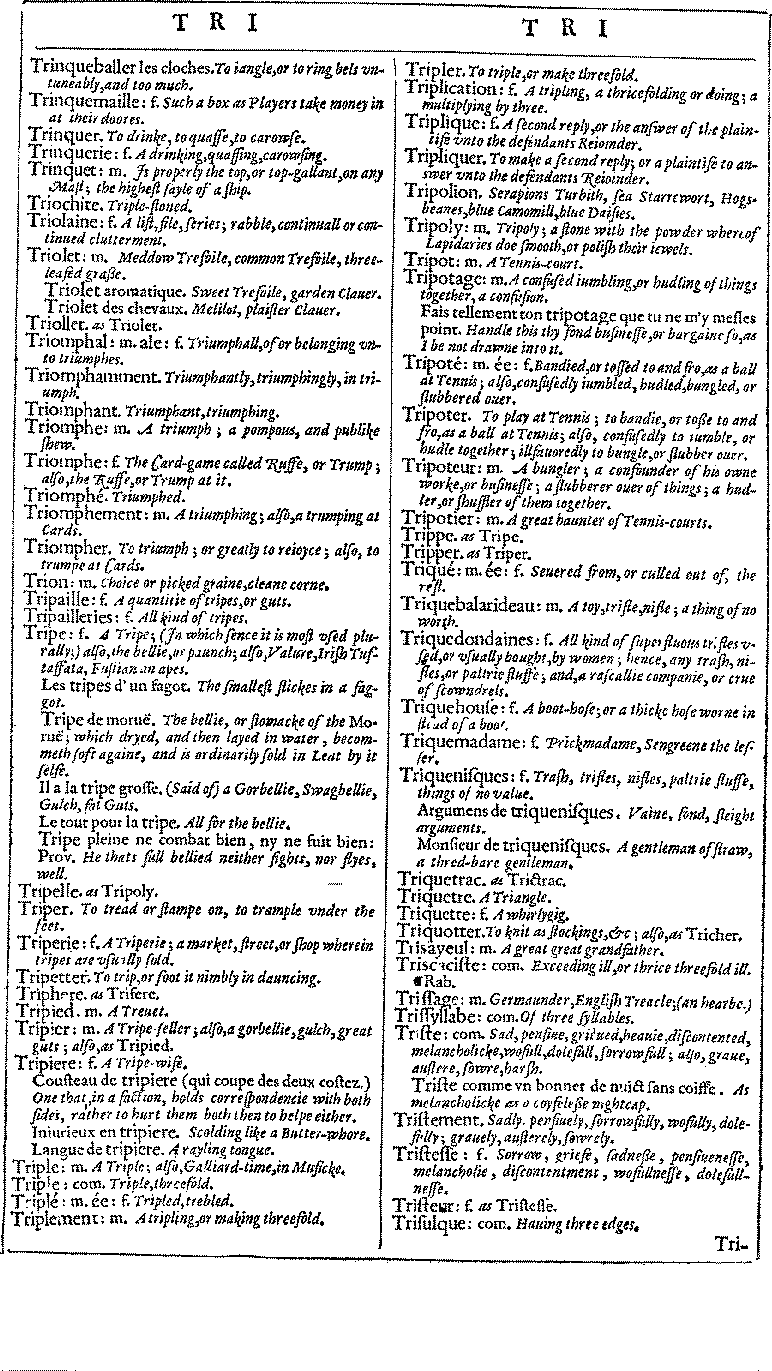 T R I
Trinqueballer les cloches. To iangle, or to ring bels vn-
tuneably, and too much.
Trinquemaille: f. Such a box as Players take money in
at their doores.
Trinquer. To drinke, to quaffe, to carowſe.
Trinquerie: f. A drinking, quaffing, carowſing.
Trinquet: m. Is properly the top, or top-gallant, on any
Maſt; the higheſt ſayle of a ſhip.
Triochite. Triple-ſtoned.
Triolaine: f. A liſt, file, ſeries; rabble, continuall or con-
tinued clutterment.
Triolet: m. Meddow Trefoile, common Trefoile, three-
leafed graſſe.
Triolet aromatique. Sweet Trefoile, garden Clauer.
Triolet des chevaux. Melilot, plaiſter Clauer.
Triollet. as Triolet.
Triomphal: m. ale: f. Triumphall, of or belonging vn-
to triumphes.
Triomphamment. Triumphantly, triumphingly, in tri-
umph.
Triomphant. Triumphant, triumphing.
Triomphe: m. A triumph; a pompous, and publike
ſhew.
Triomphe: f. The Card-game called Ruffe, or Trump;
alſo, the Ruffe, or Trump at it.
Triomphé. Triumphed.
Triomphement: m. A triumphing; alſo, a trumping at
Cards.
Triompher. To triumph; or greatly to reioyce; alſo, to
trumpe at Cards.
Trion: m. Choice or picked graine, cleane corne.
Tripaille: f. A quantitie of tripes, or guts.
Tripailleries: f. All kind of tripes.
Tripe: f. A Tripe; (In which ſence it is moſt vſed plu-
rally;) alſo, the bellie, or paunch; alſo, Valure, Iriſh Tuf-
taffata, Fuſtian an apes.
Les tripes d'un fagot. The ſmalleſt ſtickes in a fag-
got.
Tripe de moruë. The bellie, or ſtomacke of the Mo-
ruë; which dryed, and then layed in water, becom-
meth ſoft againe, and is ordinarily ſold in Leat by it
ſelfe.
Il a la tripe groſſe. (Said of) a Gorbellie, Swagbellie,
Gulch, fat Guts.
Le tout pour la tripe. All for the bellie.
Tripe pleine ne combat bien, ny ne fuit bien:
Prov. He thats full bellied neither fights, nor flyes,
well.
Tripelle. as Tripoly.
Triper. To tread or ſtampe on, to trample vnder the
feet.
Triperie: f. A Triperie; a market, ſtreet, or ſhop wherein
tripes are vſually ſold.
Tripetter. To trip, or foot it nimbly in dauncing.
Triphere. as Trifere.
Tripied. m. A Treuet.
Tripier: m. A Tripe-ſeller; alſo, a gorbellie, gulch, great
guts; alſo, as Tripied.
Tripiere: f. A Tripe-wife.
Couſteau de tripiere (qui coupe des deux coſtez.)
One that, in a faction, holds correſpondencie with both
ſides, rather to hurt them both then to helpe either.
Iniurieux en tripiere. Scolding like a Butter-whore.
Langue de tripiere. A rayling tongue.
Triple: m. A Triple; alſo, Galliard-time, in Muſicke.
Triple: com. Triple, threefold.
Triplé: m. ée: f. Tripled, trebled.
Triplement: m. A tripling, or making threefold.
T R I
Tripler. To triple, or make threefold.
Triplication: f. A tripling, a thricefolding or doing; a
multiplying by three.
Triplique: f. A ſecond reply, or the anſwer of the plain-
tife vnto the defendants Reioinder.
Tripliquer. To make a ſecond reply; or a plaintife to an-
ſwer vnto the defendants Reioinder.
Tripolion. Serapions Turbith, ſea Starrewort, Hogs-
beanes, blue Camomill, blue Daiſies.
Tripoly: m. Tripoly; a ſtone with the powder whereof
Lapidaries doe ſmooth, or poliſh their iewels.
Tripot: m. A Tennis-court.
Tripotage: m. A confuſed iumbling, or hudling of things
together, a confuſion.
Fais tellement ton tripotage que tu ne m'y meſles
point. Handle this thy fond buſineſſe, or bargaine ſo, as
I be not drawne into it.
Tripoté: m. ée: f. Bandied, or toſſed to and fro, as a ball
at Tennis; alſo, confuſedly iumbled, hudled, bungled, or
ſlubbered ouer.
Tripoter. To play at Tennis; to bandie, or toſſe to and
fro, as a ball at Tennis; alſo, confuſedly to iumble, or
hudle together; illfauoredly to bungle, or ſlubber ouer.
Tripoteur: m. A bungler; a confounder of his owne
worke, or buſineſſe; a ſlubberer ouer of things; a hud-
ler, or ſhuffler of them together.
Tripotier: m. A great haunter of Tennis-courts.
Trippe. as Tripe.
Tripper. as Triper.
Triqué: m. ée: f. Seuered from, or culled out of, the
reſt.
Triquebalarideau: m. A toy, trifle, nifle; a thing of no
worth.
Triquedondaines: f. All kind of ſuperfluous trifles v-
ſed, or vſually bought, by women; hence, any traſh, ni-
fles, or paltrie ſtuffe; and, a raſcallie companie, or crue
of ſcowndrels.
Triquehouſe: f. A boot-hoſe; or a thicke hoſe worne in
ſtead of a boot.
Triquemadame: f. Prickmadame, Sengreene the leſ-
ſer.
Triqueniſques: f. Traſh, trifles, nifles, paltrie ſtuffe,
things of no value.
Argumens de triqueniſques. Vaine, fond, ſleight
arguments.
Monſieur de triqueniſques. A gentleman of ſtraw,
a thred-bare gentleman.
Triquetrac. as Trictrac.
Triquetre. A Triangle.
Triquette: f. A whirlygig.
Triquotter. To knit as ſtockings, &c; alſo, as Tricher.
Triſayeul: m. A great great grandfather.
Triſcaciſte: com. Exceeding ill, or thrice threefold ill.
¶Rab.
Triſſage: m. Germaunder, Engliſh Treacle; (an hearbe.)
Triſſyllabe: com. Of three ſyllables.
Triſte: com. Sad, penſiue, grieued, heauie, diſcontented,
melancholicke, wofull, dolefull, ſorrowfull; alſo, graue,
auſtere, ſowre, harſh.
Triſte comme vn bonnet de nuict ſans coiffe. As
melancholicke as a coyfeleſſe nightcap.
Triſtement. Sadly, penſiuely, ſorrowfully, wofully, dole-
fully; grauely, auſterely, ſowrely.
Triſteſſe: f. Sorrow, griefe, ſadneſſe, penſiueneſſe,
melancholie, diſcontentment, wofullneſſe, dolefull-
neſſe.
Triſteur: f. as Triſteſſe.
Triſulque: com. Hauing three edges.
Tri-